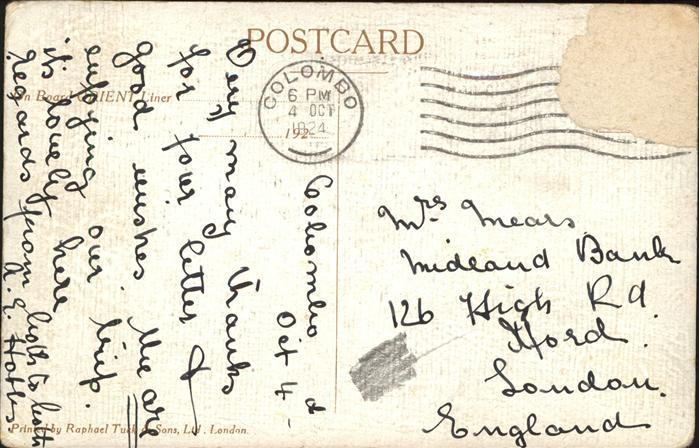 POSTCARD
On Board ORIENT Liner
192
COLOMBO
6 PM
4 OCT
1924
Colombo
Oct 4th
Very many thanks
for your letter &
good wishes. We are
enjoying our trip.
it's lovely here
Regards from both to both
A. E.
Mrs Mears
Midland Bank
126 High Rd.
Ilford.
London.
England
Printed by Raphael Tuck & Sons, Ltd. London.